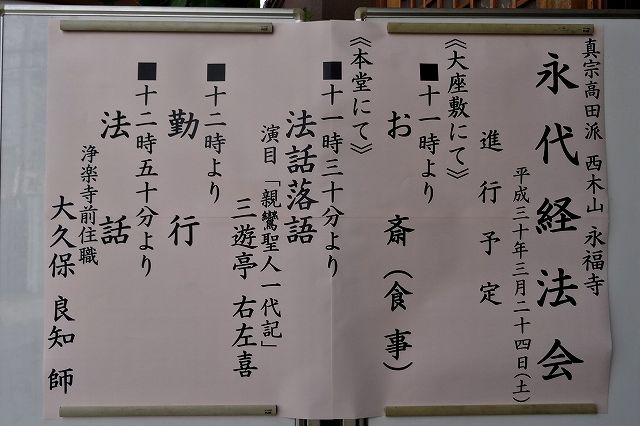 真宗高田派 西木山 永福寺
永代経法会
平成三十年三月二十四日(土)
進行予定
《大座敷にて》
■十一時より
お斎(食事)
《本堂にて》
■十一時三十分より
法話落語
演目「親鸞聖人一代記」
三遊亭 右左喜
■十二時より
勤行
■十二時五十分より
法話
浄楽寺前住職
大久保 良知 師